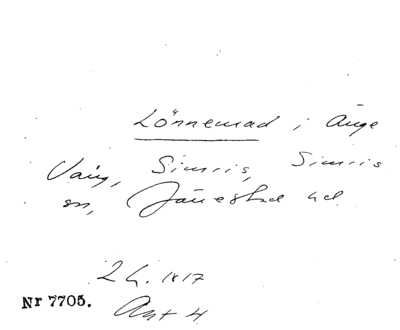 Lönnemad i Änge
Vång, Simris, Simris
sn, Järrestad hd.
2 h. 1817
Nr 7705.
Akt 4